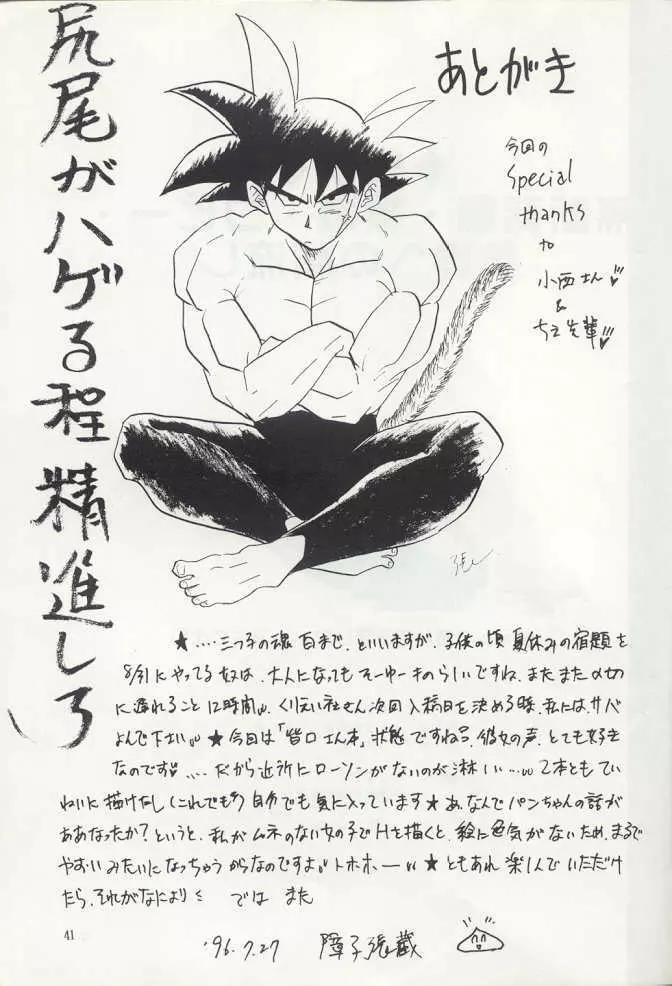 尻尾がハゲる程精進しろ
あとがき
今回の
Special
thanks
to
小西さん
&
先輩
★‥‥三つ子の魂 百まで、といいますが、子供の頃 夏休みの宿題を
8/31にやってる奴は、大人になってもそーゆーものらしいですね、またまた〆切
に遅れること 12時間。くりえい社さん次回入稿日を決める時、私には、サバ
よんで下さい。★今日は「皆口さん本」状態ですね。彼女の声、とても好き
なのです‥‥だから近所にローソンがないのが淋しい‥‥。2本ともてい
ねいに描けたし(これでも)自分でも気に入っています★あ、なんでパンちゃんの話が
ああなったか?というと、私がムネのない女の子でHを描くと、絵に色気がないため、まるで
やおいみたいになっちゃうからなのですよ トホホ—★ともあれ 楽しんでいただけ
たら、それがなにより では また
41
'96.7.27 障子張蔵